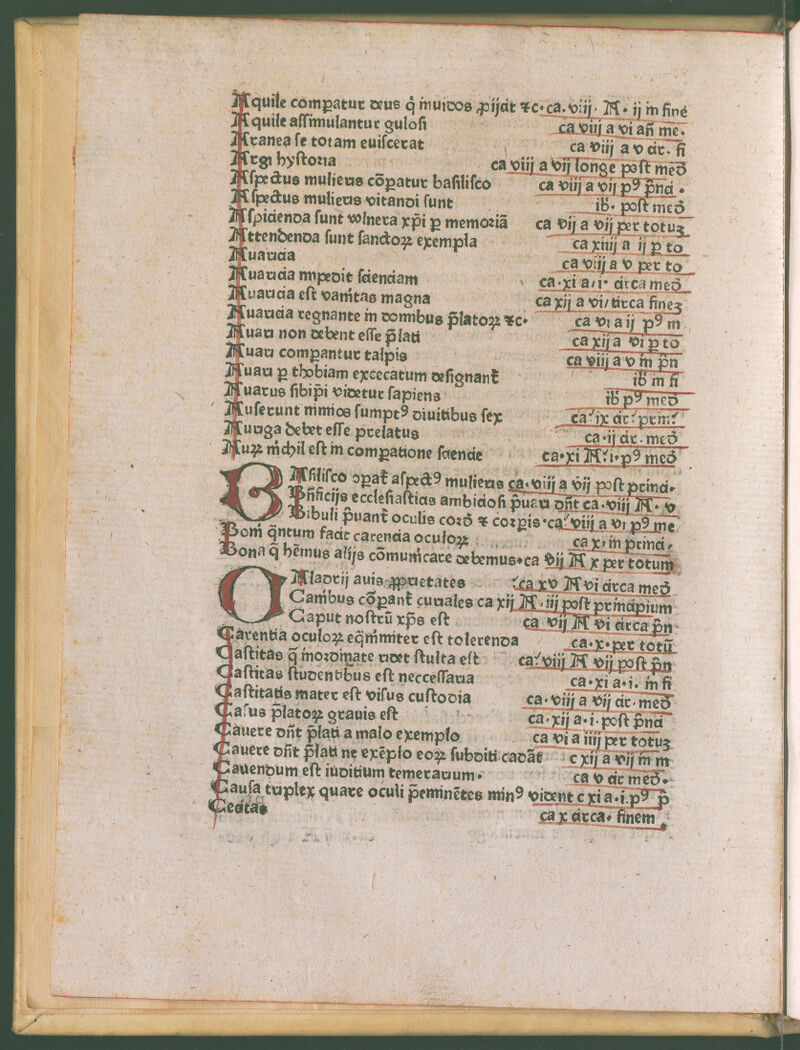 Aquile compatur deus q̄ nuidos ꝓijcit ⁊c. ca. viij. A. ij in fine
Aquile assimulantur gulosi ca viij a vi añ me.
Aranea se totam euiscerat ca viij a v cir. fi
Argi hystoria ca viij a vij longe post med̄
Aspectus mulieris cōꝑatur basilisco ca viij a vij pꝰ prīn .
Aspectus mulieris vitandi sunt ib̄. post med̄
Aspicienda sunt vulnera xp̄i ꝑ memoriā ca vij a vij per totuꝫ
Attendenda sunt sanctoꝝ exempla ca xiiij a ij ꝑ to
Auaricia ca viij a v per to
Auaricia impedit scienciam ca. xi a.i. circa med̄
Auaricia est vanitas magna ca xij a vi circa fineꝫ
Auaricia regnante in domibus p̄latoꝝ ⁊c. ca vi a ij pꝰ m
Auari non debent esse p̄lati ca xij a vi ꝑ to
Auari comparantur talpis ca viij a v in prīn
Auari ꝑ thobiam excecatum designant᷑ ib̄ in fi
Auarus sibiipi videtur sapiens ib̄ pꝰ med̄
Auferunt nimios sumptꝰ diuitibus sex ca. ix cir. prin.
Auriga debet esse prelatus ca. ij cir. med̄
Auꝝ nichil est in comparatione sciencie ca. xi A. i. pꝰ med̄
BAsilisco ꝯpat᷑ aspectꝰ mulieris ca. viij a vij post princi.
Bn̄ficijs ecclesiasticis ambiciosi p̄uari dn̄t ca. viij A. v
Bibuli p̄uant᷑ oculis cord̄ ⁊ corpis. ca. viij a vi pꝰ me
Boni q̄ntum facit carencia oculoꝝ ca x. in princi.
Bona q̄ hēmus alijs cōmunicare debemus. ca vij A x per totum
CAladrij auis ꝓprietates ca xv A vi circa med̄
Canibus cōpant᷑ curiales ca xij A. iij post principium
Caput nostrū xp̄s est ca vij A vi circa prīn
Carentia oculoꝝ eq̄nimiter est toleranda ca. x. per totū
Castitas q̄ inordinate ridet stulta est ca. viij A vij post prīn
Castitas studentibus est neccessaria ca. xi a. i. in fi
Castitatis mater est visus custodia ca. viij a vij cir. med̄
Casus p̄latoꝝ grauis est ca. xij a. i. post prīnci
Cauere dn̄t p̄lati a malo exemplo ca vi a iiij per totuꝫ
Cauere dn̄t p̄lati ne exēplo eoꝝ subditi cadāt c xij a vij in m
Cauendum est iuditium temerarium. ca v cir med̄.
Causa triplex quare oculi p̄eminētes minꝰ vident c xi a. i. pꝰ p̄
Cecitas ca x circa. finem.